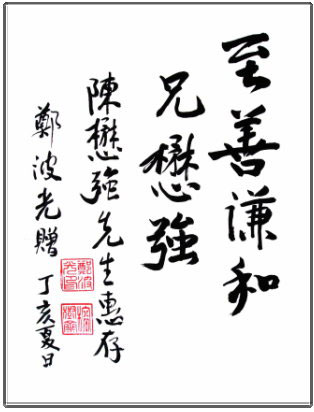 至善謙和
兄懋強
陳懋強先生惠存
鄭波光贈 丁亥夏日